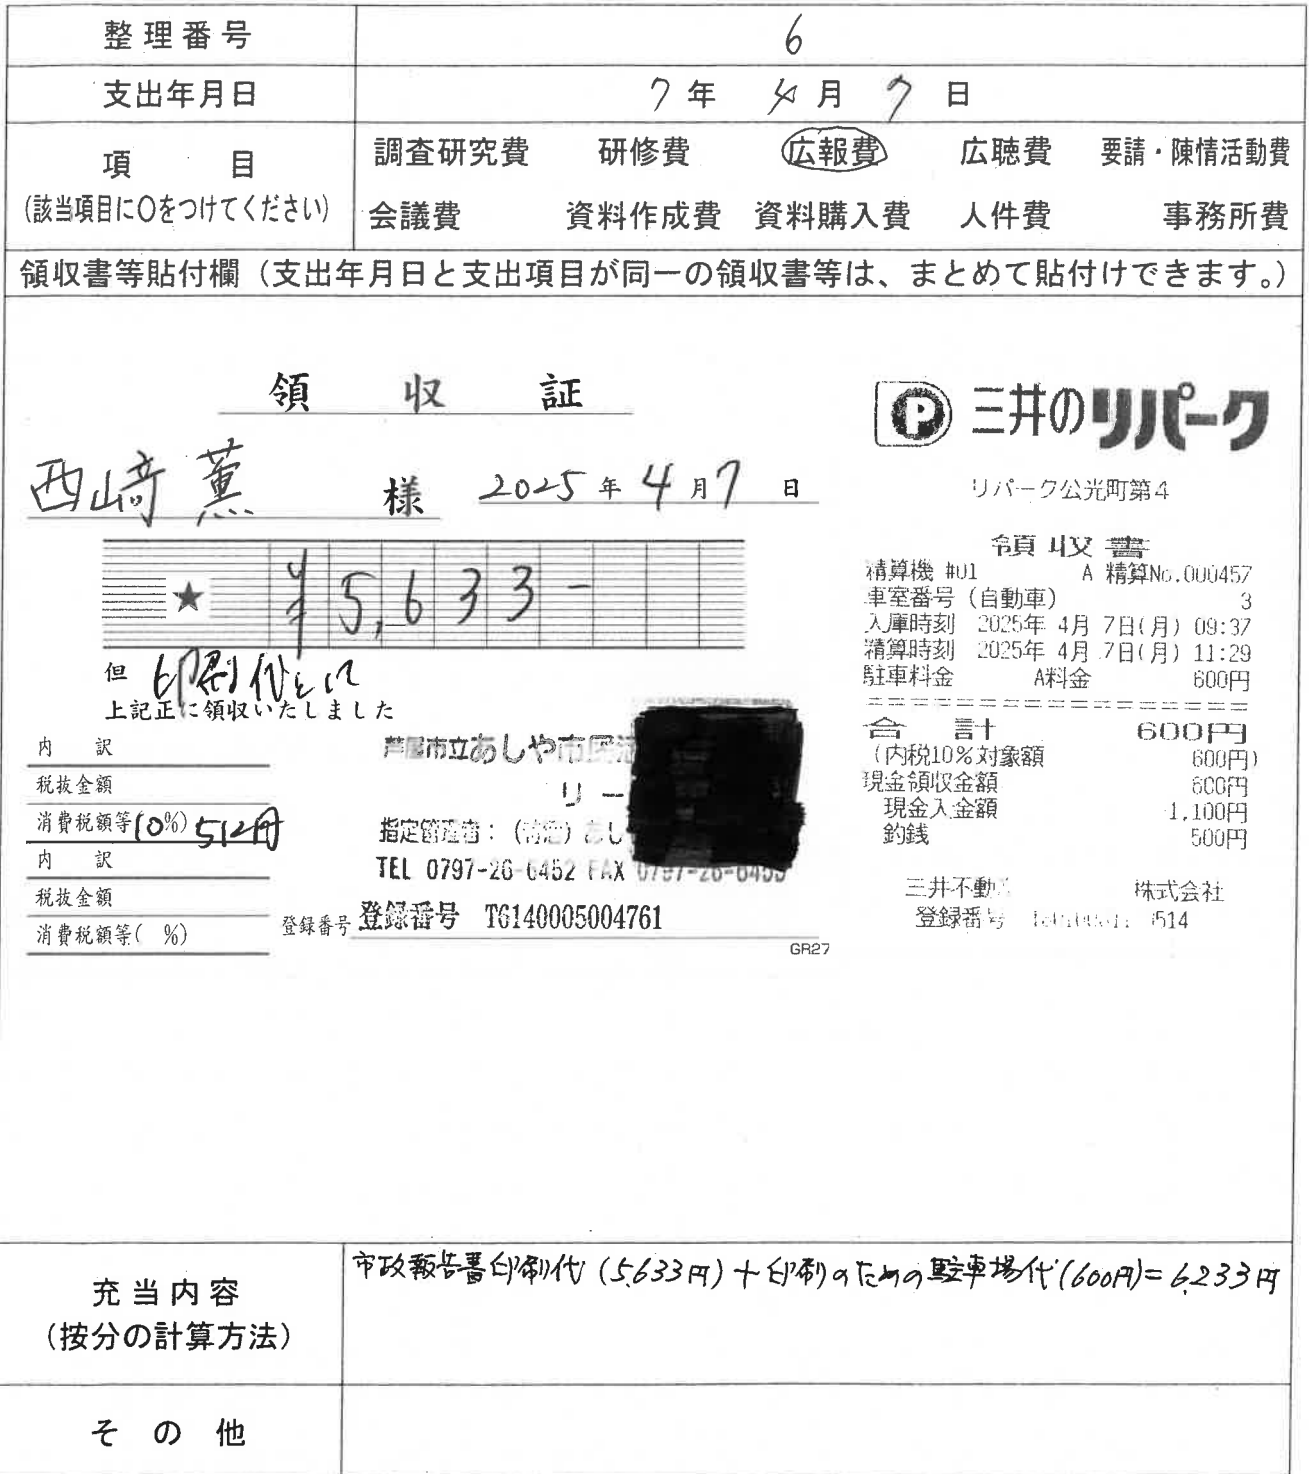 整理番号 6
支出年月日 7年 4月 7日
項 目
(該当項目に○をつけてください)
調査研究費 研修費 広報費 広聴費 要請・陳情活動費
会議費 資料作成費 資料購入費 人件費 事務所費
領収書等貼付欄（支出年月日と支出項目が同一の領収書等は、まとめて貼付けできます。）
領 収 証
西﨑 薫 様 2025年 4月 7日
★ ¥5,633-
但 印刷代として
上記正に領収いたしました
内 訳
税抜金額
消費税額等(10%) 512円
内 訳
税抜金額
消費税額等( %)
芦屋市立あしや市民活
リー
指定管理者：（特活）あし
TEL 0797-26-6452 FAX 0797-26-6453
登録番号 登録番号 T6140005004761
GR27
P 三井のリパーク
リパーク公光町第4
領収書
精算機 #01 A 精算No.000457
車室番号（自動車） 3
入庫時刻 2025年 4月 7日(月) 09:37
精算時刻 2025年 4月 7日(月) 11:29
駐車料金 A料金 600円
====================
合 計 600円
（内税10%対象額 600円)
現金領収金額 600円
現金入金額 1,100円
釣銭 500円
三井不動 株式会社
登録番号 514
充当内容
（按分の計算方法）
市政報告書印刷代（5,633円）＋印刷のための駐車場代（600円）＝6,233円
その他